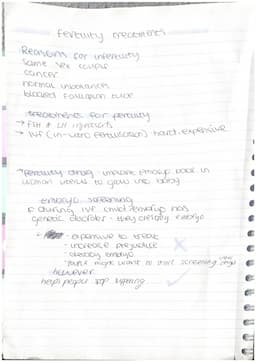 fertility treatments
Reasons for infertility
same sex couple
cancer
hormonal imbalances
blocked fallopian tube
treatments for fertility
→ FSH & LH injections
→ IVF (in-vitro fertilisation) hard, expensive
→ fertility drug implant embryo back in
woman uterus to grow into baby
embryo screening
during IVF check embryo has
genetic disorder - they destroy embryo
- expensive to treat
- increase prejudice
- destroy embryo
- people might want to start screening
however
helps people stop suffering